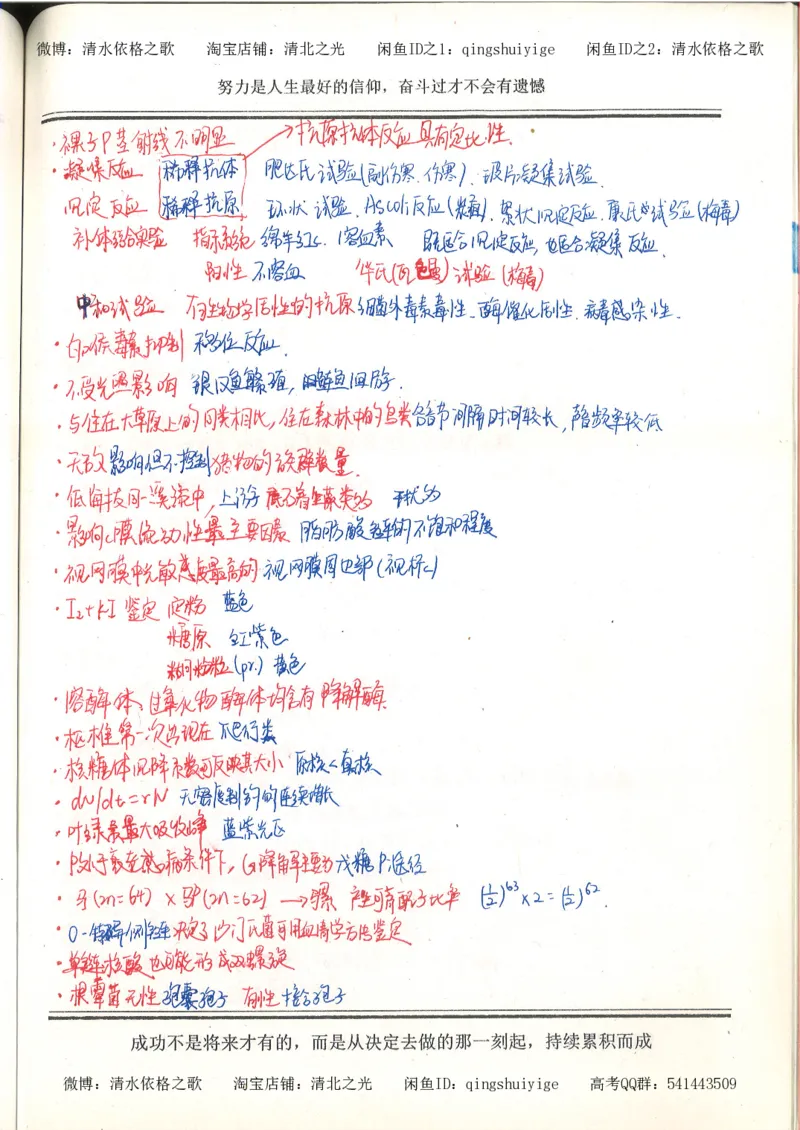 微博：清水依格之歌 淘宝店铺：清北之光 闲鱼ID之1：qingshuiyige 闲鱼ID之2：清水依格之歌
努力是人生最好的信仰，奋斗过才不会有遗憾
·裸子P茎射线不明显 →抗原抗体反应具有定比性.
·凝集反应 稀释抗体 肥达氏试验(副伤寒.伤寒). 玻片凝集试验.
沉淀反应 稀释抗原 环状试验. Ascoli反应(炭疽). 絮状沉淀反应. 康氏试验(梅毒)
补体结合实验 指示系统 绵羊红c. 溶血素 既适合沉淀反应, 也适合凝集反应.
阳性 不溶血 华氏(瓦色曼)试验(梅毒)
中和试验 有生物学活性的抗原 细菌外毒素毒性. 酶催化活性. 病毒感染性.
·白喉毒素抑制 移位反应.
·不受光照影响 银汉鱼繁殖, 鲑鱼洄游.
·与住在大草原上的同类相比, 住在森林中的鸟类 各音节间隔时间较长, 声音频率较低
·天敌影响但不控制猎物的族群数量.
·低海拔同一溪流中, 上游 底石着生藻类为 干状为
·影响c膜流动性最主要因素 脂肪酸链的不饱和程度
·视网膜中光敏感度最高的 视网膜周边部(视杆c)
·I₂+KI 鉴定 淀粉 蓝色
糖原 红紫色
糊粉粒(pr.) 黄色
·溶酶体、过氧化物酶体均含有降解酶.
·枢椎第一次出现在 爬行类
·核糖体沉降系数可反映其大小 原核<真核
·dN/dt=rN 无密度制约的连续增长
·叶绿素最大吸收峰 蓝紫光区
·P处于衰老感病条件下, G降解主要为 戊糖P途径
·马(2n=64) × 驴(2n=62) →骡 产生可育配子比率 (1/2)⁶³×2=(1/2)⁶².
·O-特异侧链 决定了沙门氏菌可用血清学方法鉴定
·单链核酸也可能形成双螺旋
·根霉菌无性 孢囊孢子 有性 接合孢子
成功不是将来才有的，而是从决定去做的那一刻起，持续累积而成
微博：清水依格之歌 淘宝店铺：清北之光 闲鱼ID：qingshuiyige 高考QQ群：541443509